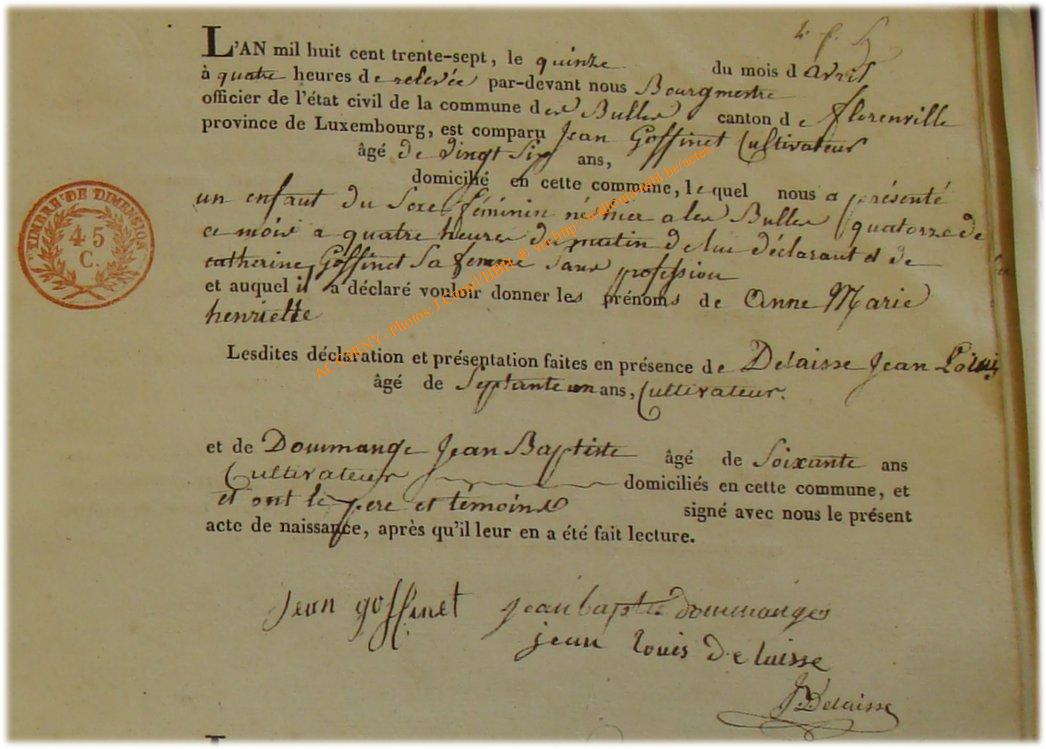 L'AN mil huit cent trente-sept, le quinze du mois d avril
à quatre heures de relevée par-devant nous Bourgmestre
officier de l'état civil de la commune des Bulles canton de florenville
province de Luxembourg, est comparu Jean Goffinet Cultivateur
âgé de vingt six ans,
domicilié en cette commune, lequel nous a présenté
un enfant du Sexe féminin né hier a les Bulles quatorze de
ce mois a quatre heures de matin de lui déclarant et de
catherine Goffinet Sa femme Sans profession
et auquel il a déclaré vouloir donner les prénoms de Anne Marie
henriette
Lesdites déclaration et présentation faites en présence de Delaisse Jean Louis
âgé de Septante un ans, Cultivateur.
et de Dommange Jean Baptiste âgé de Soixante ans
Cultivateur domiciliés en cette commune, et
et ont le pere et temoins signé avec nous le présent
acte de naissance, après qu'il leur en a été fait lecture.
jean goffinet jean baptiste dommanges
jean louis delaisse
Delaisse
TIMBRE DE DIMENSION
45
C.